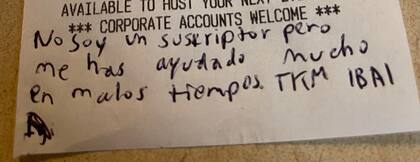 AVAILABLE TO HOST YOUR NEXT
*** CORPORATE ACCOUNTS WELCOME ***
No soy un suscriptor pero
me has ayudado mucho
en malos tiempos. TKM IBAI